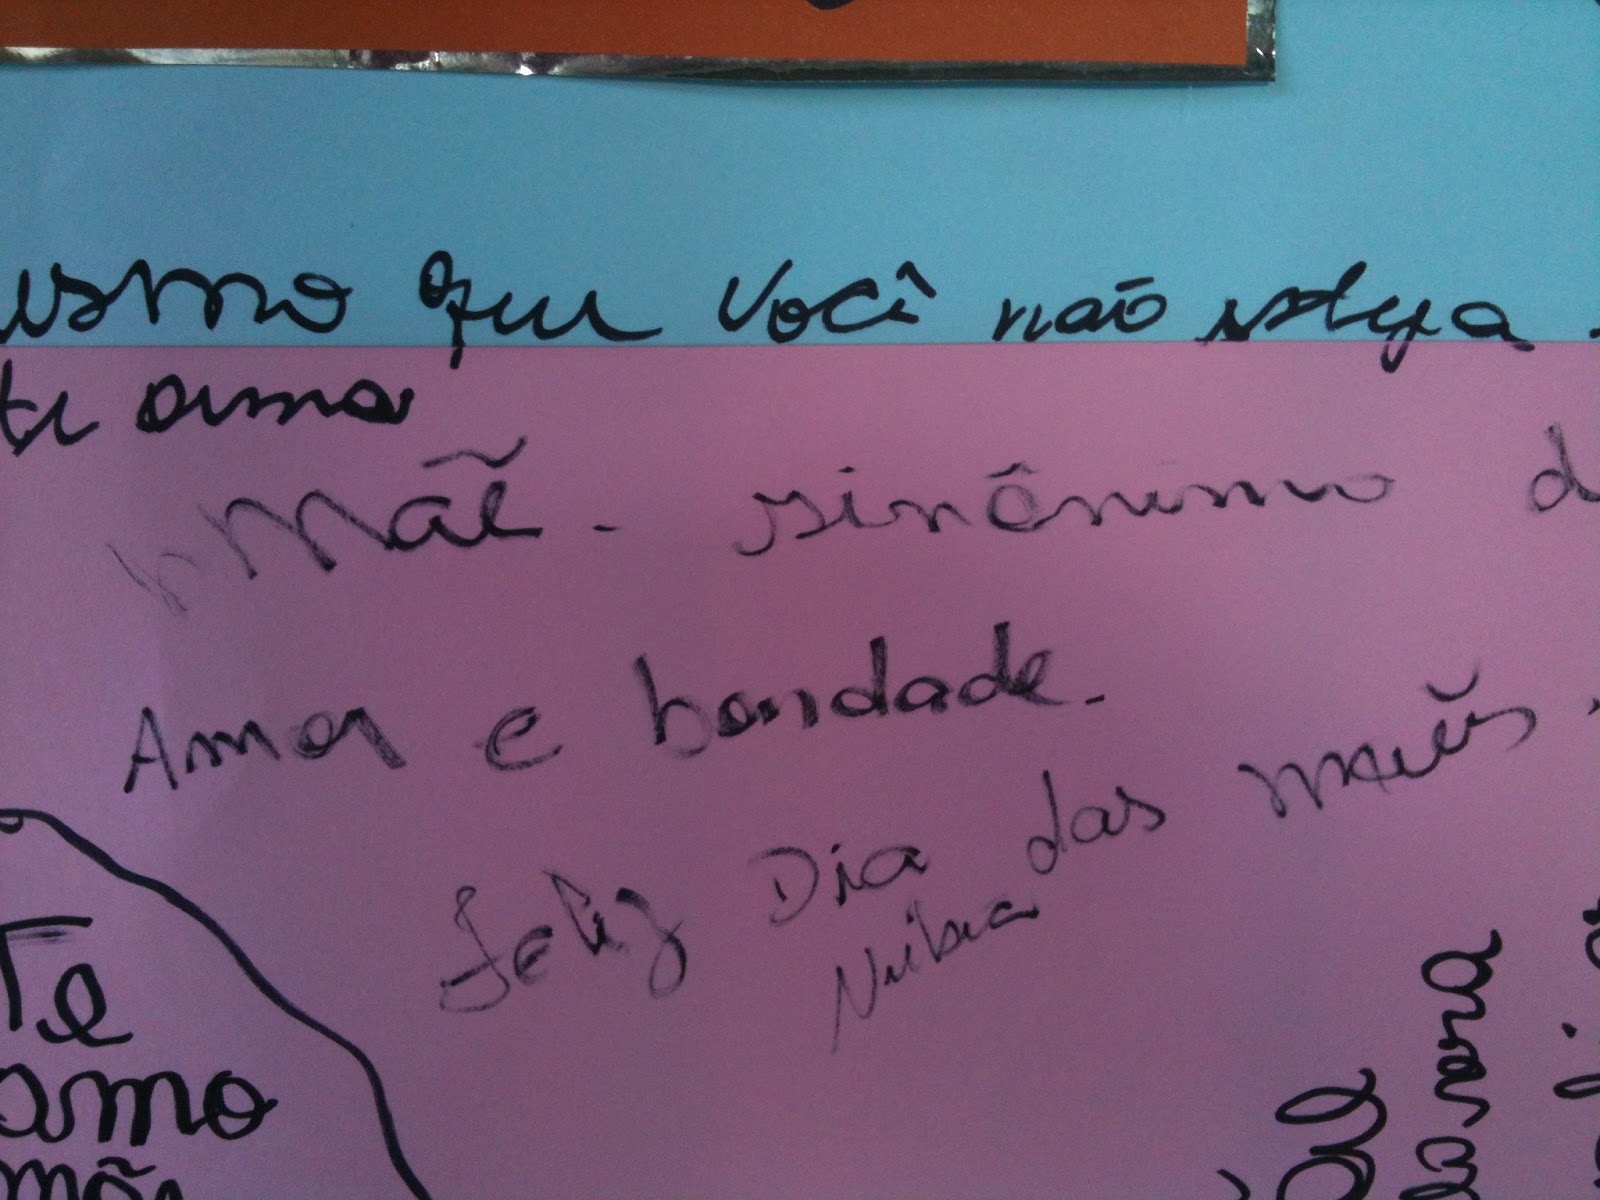 esmo que você não esteja
te ama
Mãe - sinônimo d
Amor e bondade.
Feliz Dia das mães.
Nubia
Te
amo
mãe